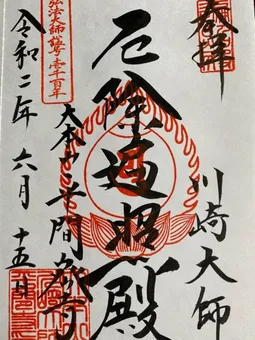 奉拝
川崎大師
厄除遍照殿
大本山平間教寺
弘法大師諡号壱千百年
令和二年六月十五日